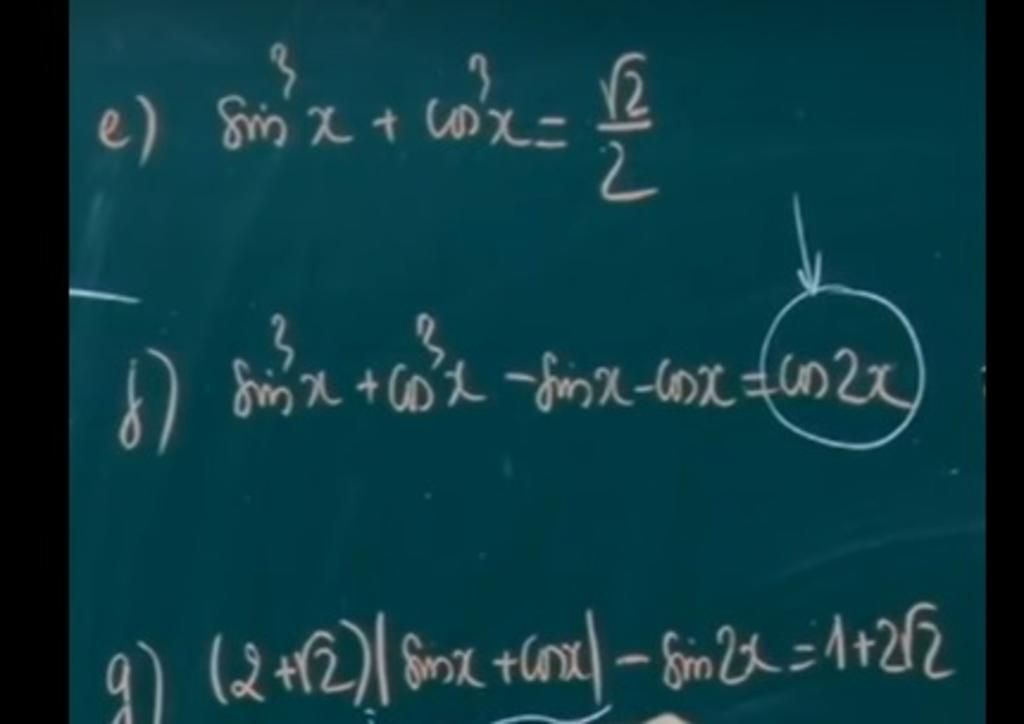 e) sin³x + cos³x = √2/2
f) sin³x + cos³x - sinx - cosx = cos2x
g) (2+√2)|sinx + cosx| - sin2x = 1+2√2